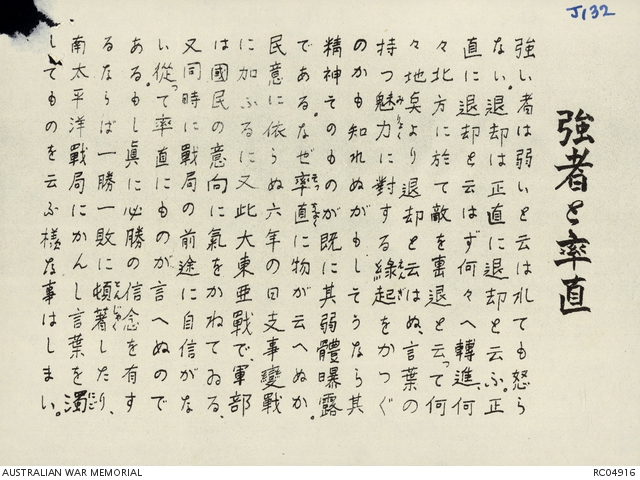 J132
強者と率直
強い者は弱いと云はれても怒ら
ない。退却は正直に退却と云ふ。正
直に退却と云はず何々へ轉進、何
々北方に於て敵を裏退と云って何
々地点より退却と云はぬ、言葉の
持つ魅力に對する緣起をかつぐ
のかも知れぬがもしそうなら其
精神そのものが既に其弱體曝露
である。なぜ率直に物が云へぬか。
民意に依らぬ六年の日支事變戰
に加ふるに又此大東亜戰で、軍部
は國民の意向に氣をかねてゐる、
又同時に戰局の前途に自信がな
い從って率直にものが言へぬので
ある。もし眞に必勝の信念を有す
るならば一勝一敗に頓著したり、
南太平洋戰局にかんし言葉を濁
してものを云ふ様な事はしまい。
AUSTRALIAN WAR MEMORIAL
RC04916